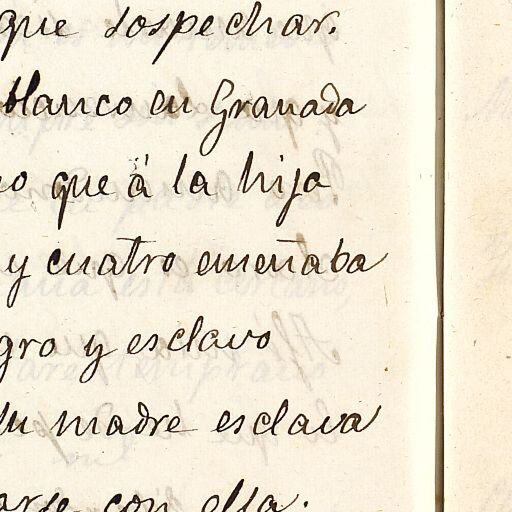 que sospechar.
blanco en Granada
o que á la hija
y cuatro enseñaba
gro y esclavo
su madre esclava
arse con ella.